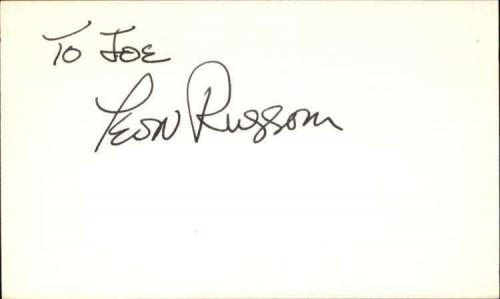 To Joe
Leon Russom